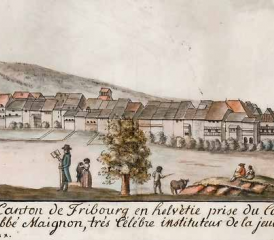 Canton de Fribourg en helvètie prise du Ca
bbé Maignon, très Célèbre instituteur de la jeu